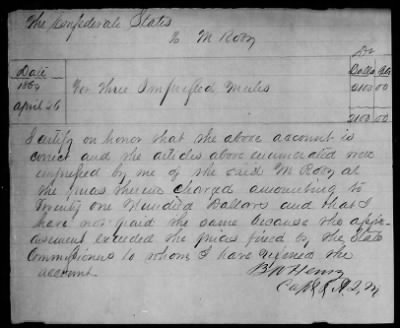 The Confederate States
To M Roby
Dr
Date Dolls Cts
1864
April 26 For Three Impressed Mules 2100 00
2100 00
I certify on honor that the above account is
correct and the articles above enumerated were
impressed by me of the said M Roby at
the prices therein charged amounting to
Twenty one Hundred Dollars and that I
have not paid the same because the appr-
aisement exceeded the prices fixed by the State
Commissioners to whom I have refered the
account.
B W Henry
Capt & A. Q. M